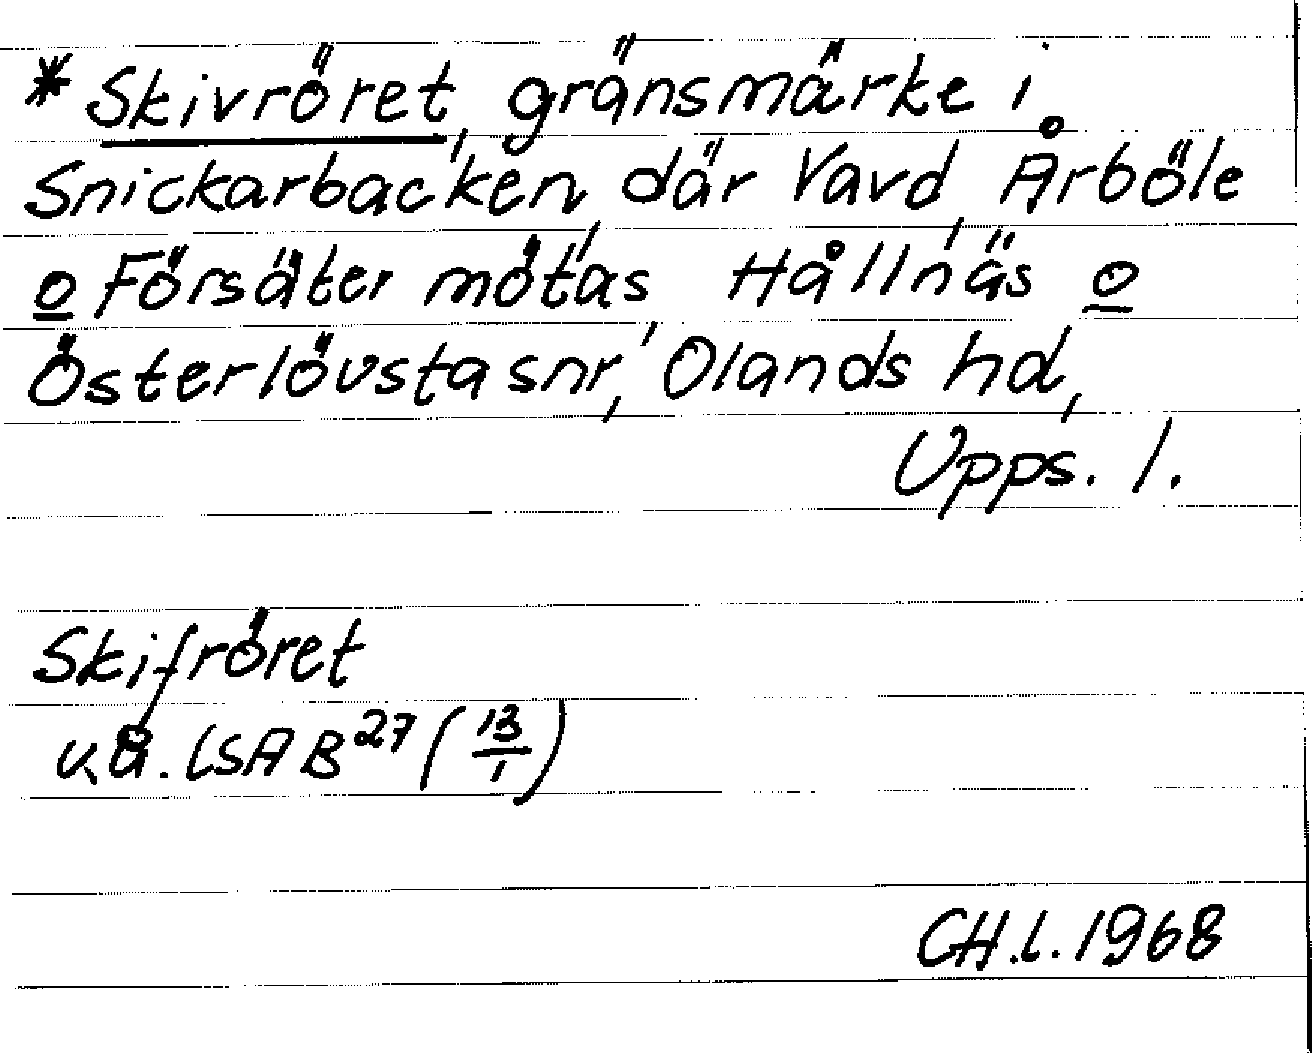 * Skivröret, gränsmärke i
Snickarbacken, där Vavd, Årböle
o Försäter mötas, Hållnäs o
Österlövsta snr, Olands hd,
Upps. l.
Skifröret
LSA B 27 (13/1)
CH.l. 1968